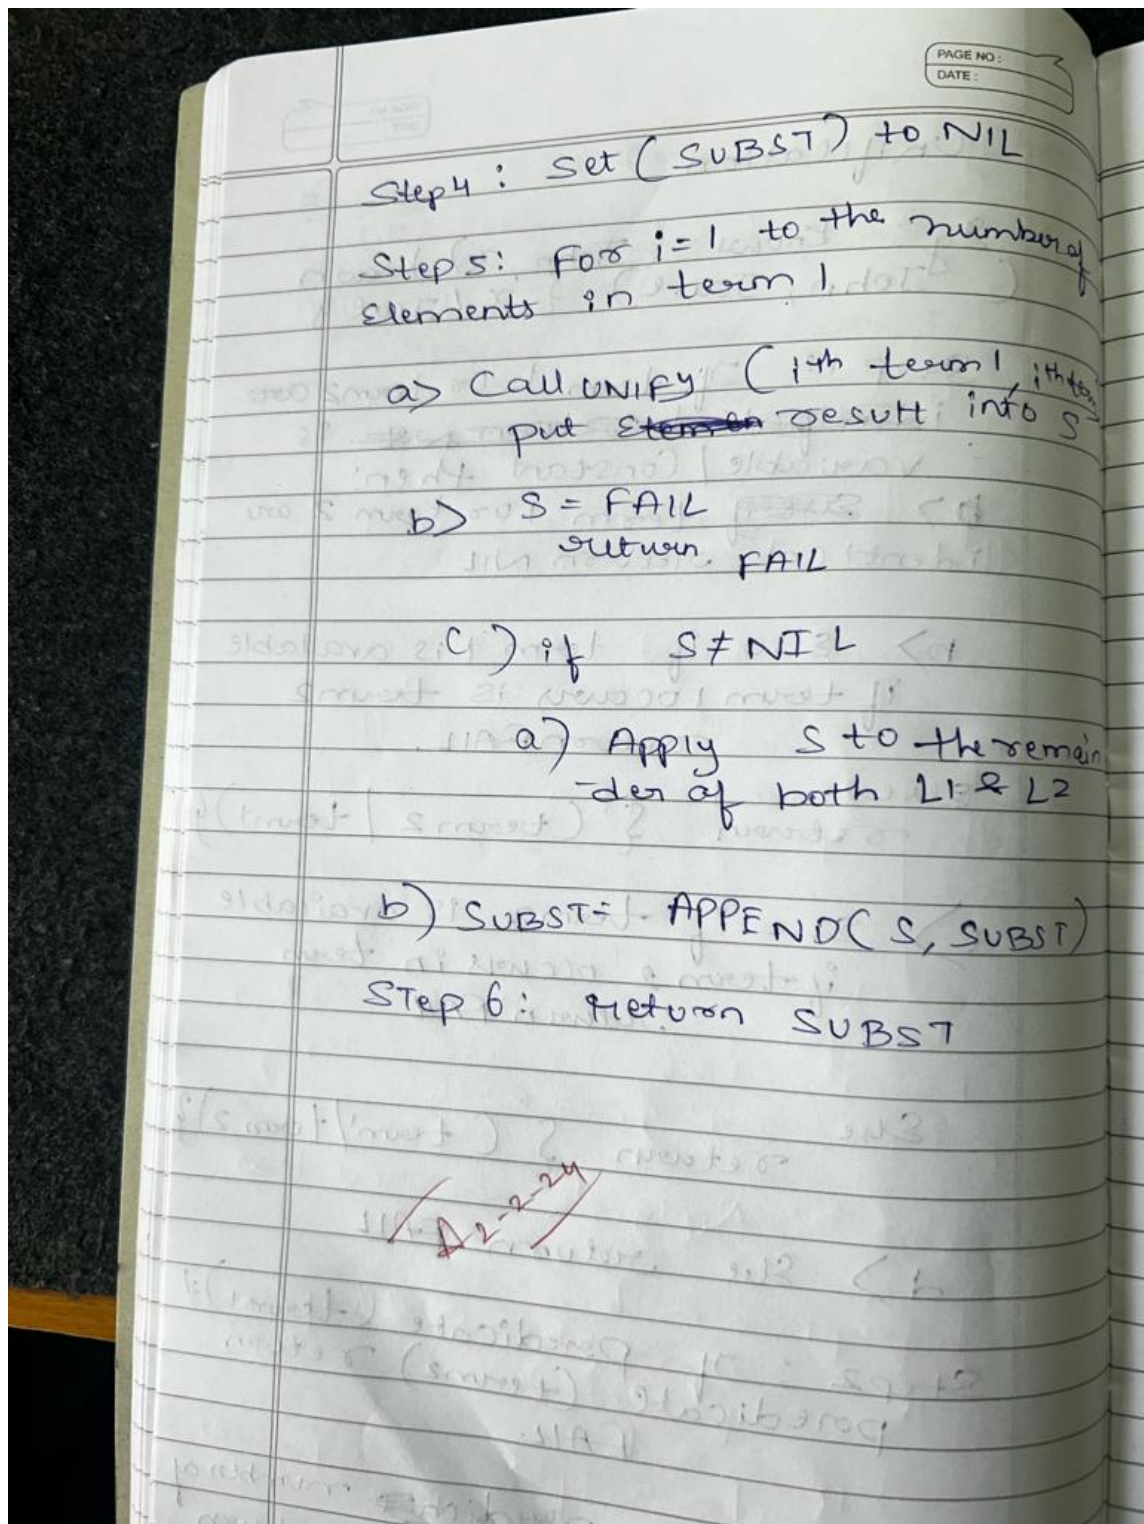 PAGE NO:
DATE:
Step 4: Set (SUBST) to NIL
Step 5: For i=1 to the number of
elements in term 1
a> Call UNIFY (ith term 1, ith term
put result into S
b> S = FAIL
return FAIL
c) if S ≠ NIL
a) Apply S to the remain
-der of both L1 & L2
b) SUBST = APPEND( S, SUBST)
STep 6: return SUBST
2-2-24